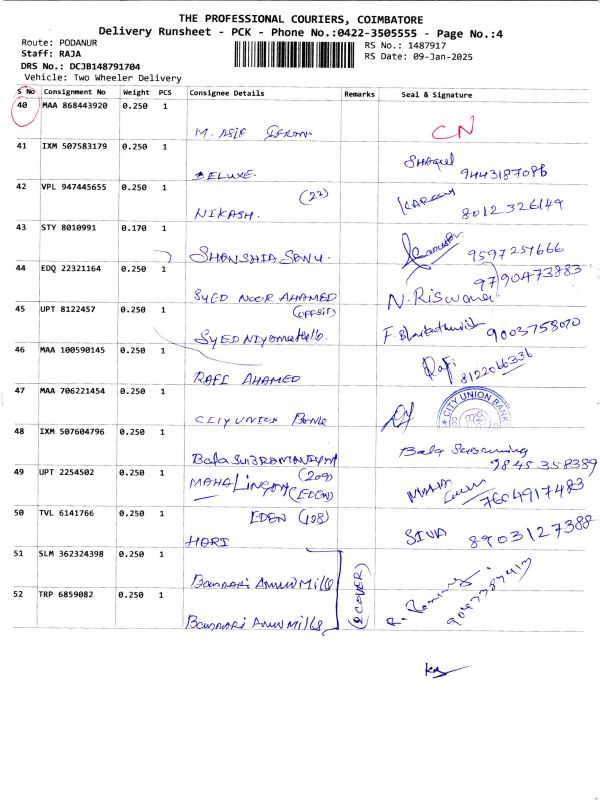 THE PROFESSIONAL COURIERS, COIMBATORE
Delivery Runsheet - PCK - Phone No.:0422-3505555 - Page No.:4
Route: PODANUR
RS No.: 1487917
Staff: RAJA
RS Date: 09-Jan-2025
DRS No.: DCJB148791704
Vehicle: Two Wheeler Delivery
S No Consignment No Weight PCS Consignee Details Remarks Seal & Signature
40 MAA 868443920 0.250 1
M. ASIF CN
41 IXM 507583179 0.250 1
DELUXE. 9443187086
42 VPL 947445655 0.250 1
(22)
NIKASH. 8012326149
43 STY 8010991 0.170 1
9597257666
44 EDQ 22321164 0.250 1
9790473883
SYED NOOR AHAMED N. Riswana
45 UPT 8122457 0.250 1
(OPPSIT)
9003758070
46 MAA 100590145 0.250 1
Rafi
RAFI AHAMED 8122066336
47 MAA 706221454 0.250 1
CITY UNION BANK
CITY UNION BANK
48 IXM 507604796 0.250 1
Bala SUBRAMANIYAM Bala
9845358389
49 UPT 2254502 0.250 1
(209)
MAHALINGAM (EDEN) MAHA 7604917483
50 TVL 6141766 0.250 1
EDEN (108)
HARI SIVA 8903127388
51 SLM 362324398 0.250 1
Bannari Amman Mills
52 TRP 6859082 0.250 1
(2 COVER)
Bannari Amman Mills